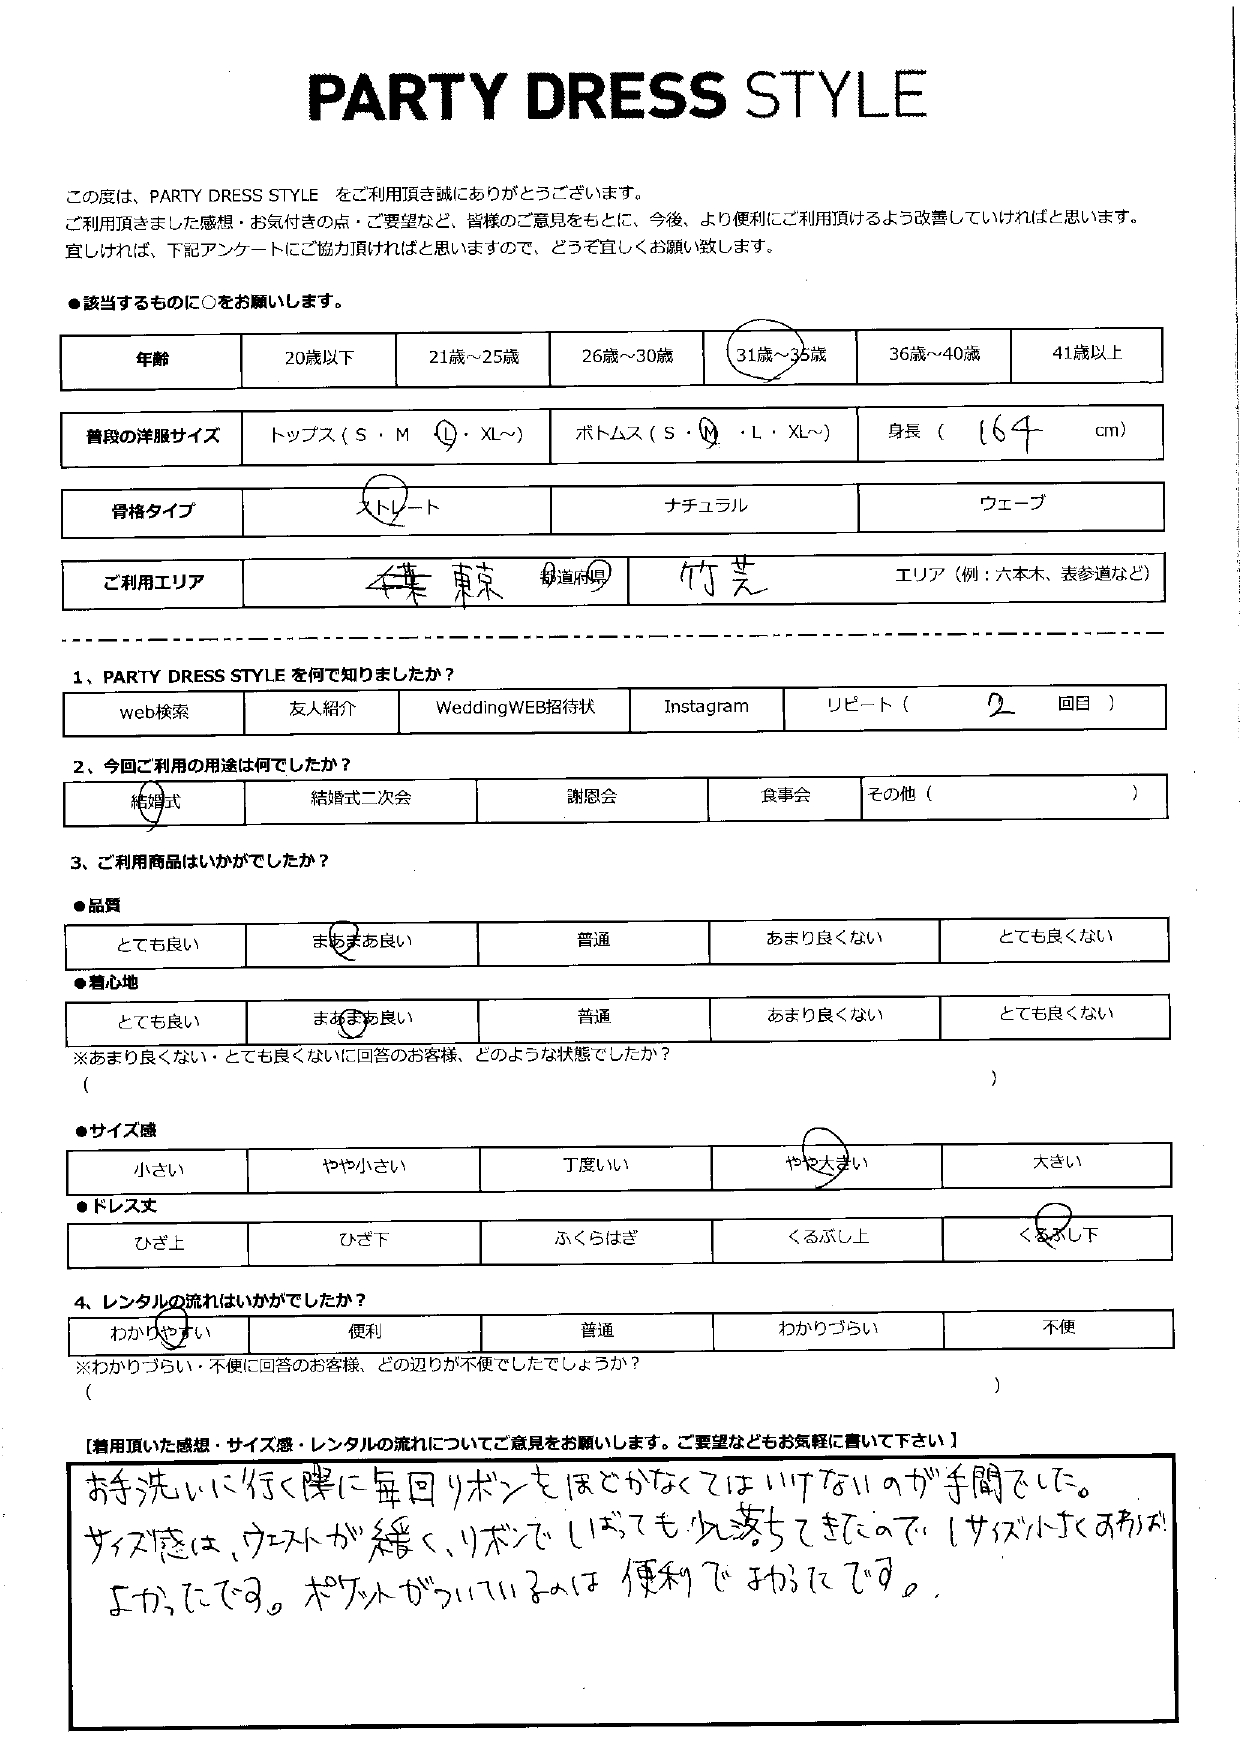 PARTY DRESS STYLE
この度は、PARTY DRESS STYLE をご利用頂き誠にありがとうございます。
ご利用頂きました感想・お気付きの点・ご要望など、皆様のご意見をもとに、今後、より便利にご利用頂けるよう改善していければと思います。
宜しければ、下記アンケートにご協力頂ければと思いますので、どうぞ宜しくお願い致します。
●該当するものに○をお願いします。
年齢 20歳以下 21歳～25歳 26歳～30歳 31歳～35歳 36歳～40歳 41歳以上
普段の洋服サイズ トップス（ S ・ M ・L・ XL～） ボトムス（ S ・ M ・L・ XL～） 身長（ 164 cm）
骨格タイプ ストレート ナチュラル ウェーブ
ご利用エリア 千葉 東京 都道府県 竹芝 エリア（例：六本木、表参道など）
1、PARTY DRESS STYLE を何で知りましたか？
web検索 友人紹介 WeddingWEB招待状 Instagram リピート（ 2 回目 ）
2、今回ご利用の用途は何でしたか？
結婚式 結婚式二次会 謝恩会 食事会 その他（ ）
3、ご利用商品はいかがでしたか？
●品質
とても良い まあまあ良い 普通 あまり良くない とても良くない
●着心地
とても良い まあまあ良い 普通 あまり良くない とても良くない
※あまり良くない・とても良くないに回答のお客様、どのような状態でしたか？
（ ）
●サイズ感
小さい やや小さい 丁度いい やや大きい 大きい
●ドレス丈
ひざ上 ひざ下 ふくらはぎ くるぶし上 くるぶし下
4、レンタルの流れはいかがでしたか？
わかりやすい 便利 普通 わかりづらい 不便
※わかりづらい・不便に回答のお客様、どの辺りが不便でしたでしょうか？
（ ）
【着用頂いた感想・サイズ感・レンタルの流れについてご意見をお願いします。ご要望などもお気軽に書いて下さい】
お手洗いに行く際に毎回リボンをほどかなくてはいけないのが手間でした。
サイズ感は、ウエストが緩く、リボンでしばっても少し落ちてきたので、1サイズ小さくあれば
よかったです。ポケットがついているのは便利でよかったです。